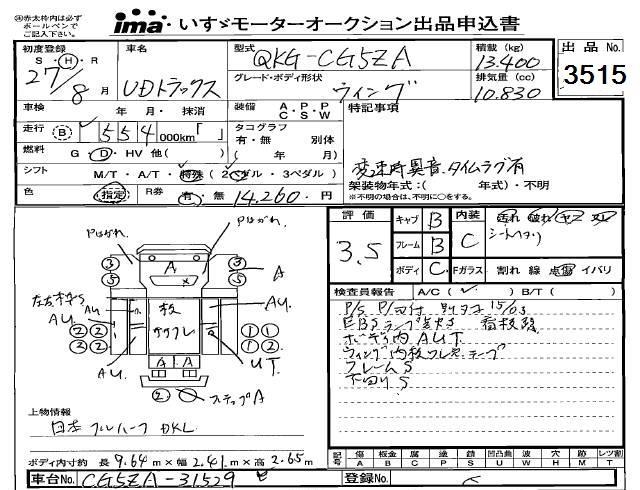 ④赤太枠内は必ず
ボールペンで
ご記入下さい。
ima・いすゞモーターオークション出品申込書
初度登録
S・H・R
27/8月
車名
UDトラックス
型式
QKG-CG5ZA
グレード・ボディ形状
ウィング
積載(kg)
13.400
排気量(cc)
10.830
出品No.
3515
車検
年・月・抹消
装備 A.C P.S P.W
特記事項
走行 B 554 000km「 」
タコグラフ
有・無 別体
( 年/ 月)
燃料
G・D・HV 他( )
シフト
M/T・A/T・特殊(2ペダル・3ペダル)
変速時異音.タイムラグ有
架装物年式:( 年式)・不明
※不明の場合は、不明に○をする。
色
(指定)
R券
有・無 14,260.円
評価
3.5
キャブ B
フレーム B
ボディ C
内装 C
汚れ 破れ
シートヘタリ
Fガラス 割れ 線 点傷 イバリ
検査員報告 A/C( ✓ ) B/T( )
ボデー内 A U T
フレームS
下回りS
Pはがれ
Pはがれ
A
A
③ ⑤
③ ⑤
AU
AU.
② ② ② ②
① ① ① ①
AU.
UT.
A A
② ステップA
上物情報
日本フルハーフ DKL
ボディ内寸約 長9.64m×幅2.41m×高2.65m
記号
傷 A
板金 B
腐 C
塗 P
錆 S
凹凸曲 U
波 W
穴 H
跡 M
レツ割 T
車台No. CG5ZA-31529
登録No.